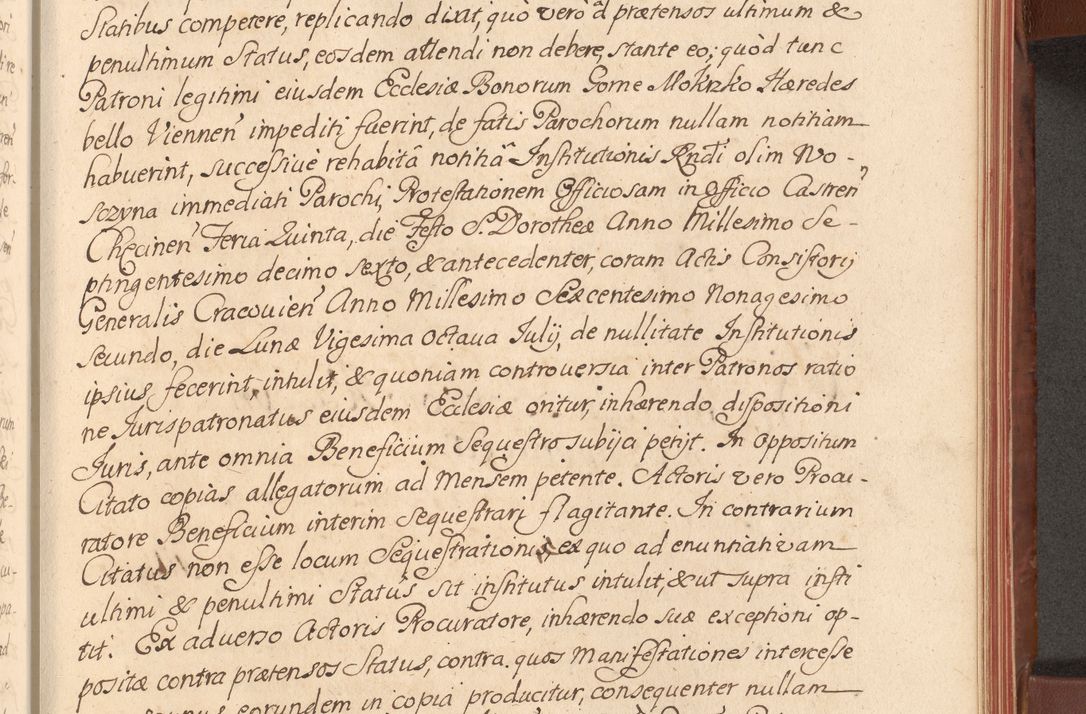 Statibus competere, replicando dixit, quò verò ad prætensos ultimum &
penultimum Status, eosdem attendi non debere, stante eo, quòd tunc
Patroni legitimi eiusdem Ecclesiæ Bonorum Gorne Mokrzko Hæredes
bello Viennen̄ impediti fuerint, de fatis Parochorum nullam notitiam
habuerint, successivè rehabitâ notitiâ Institutionis Rndi olim Wo-
sozyna immediati Parochi, Protestationem Officiosam in Officio Castren̄
Checinen̄ Feria Quinta, die Festo S. Dorotheæ Anno Millesimo Se-
ptingentesimo decimo sexto, & antecedenter, coram Actis Consistorij
Generalis Cracovien̄ Anno Millesimo Sexcentesimo Nonagesimo
secundo, die Lunæ Vigesima octava Julij, de nullitate Institutionis
ipsius fecerint, intulit, & quoniam controversia inter Patronos ratio
ne Jurispatronatus eiusdem Ecclesiæ oritur, inhærendo dispositioni
Juris, ante omnia Beneficium Sequestro subijci petijt. In oppositum
Citato copias allegatorum ad Mensem petente. Actoris vero Procu-
ratore Beneficium interim sequestrari flagitante. In contrarium
Citatus non esse locum Sequestrationis, ex quo ad enuntiativam
ultimi & penultimi Status sit institutus intulit, & ut supra insti
tit. Ex adverso Actoris Procuratore, inhærendo suæ exceptioni op-
positæ contra prætensos Status, contra quos Manifestationes intercesse
eorundem in copia producitur, consequenter nullam